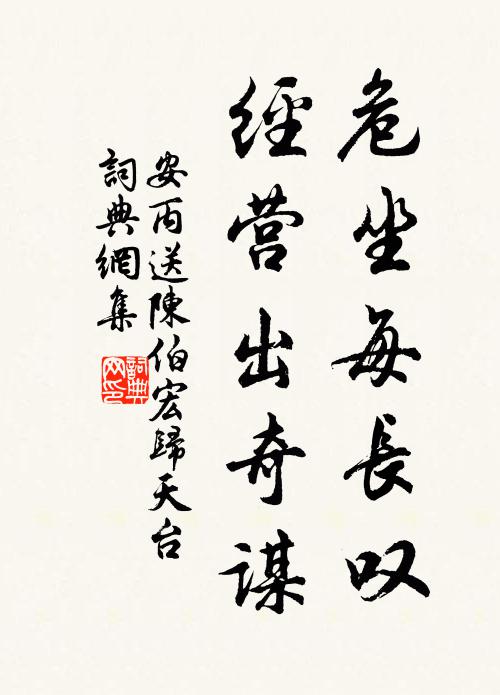 危坐每長叹
經营出奇謀
安丙送陳伯宏歸天台
詞典網集
詞典网印